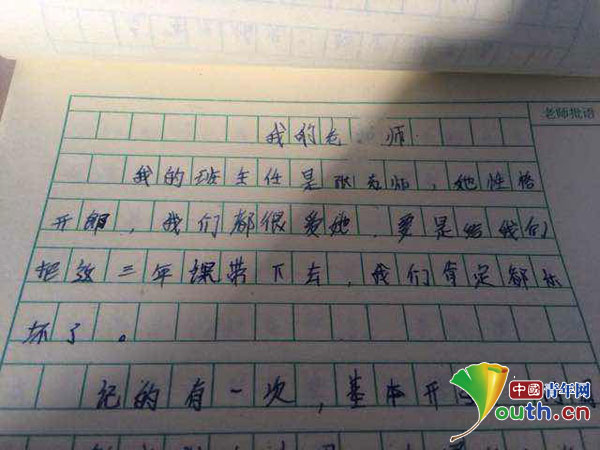 老师批语
我的老师
我的班主任是张老师，她性格
开朗，我们都很爱她，要是给我们
把这三年课带下去，我们肯定都
坏了。
记的有一次，基本开
中國青年网
Youth.cn